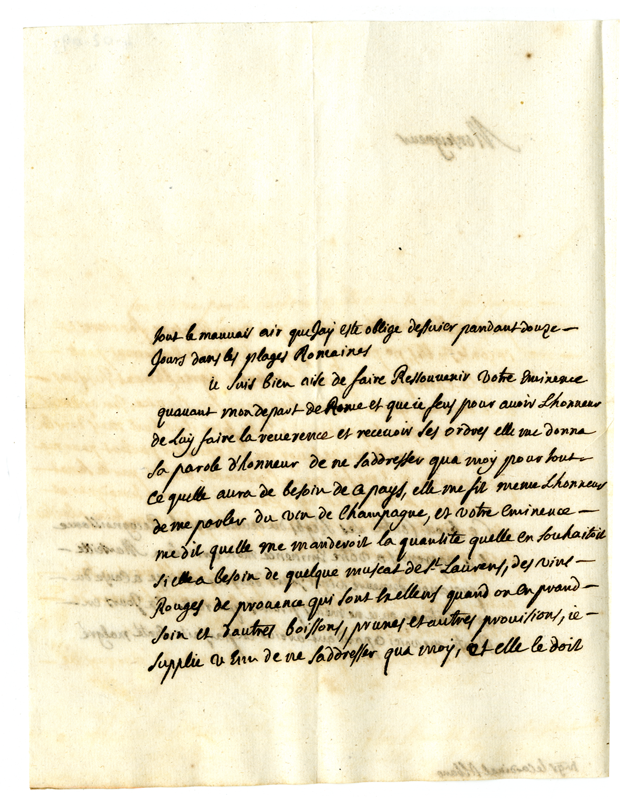 tout le mauuais air que Jay este oblige dessuier pandant douze
Jours dans les plages Romaines
ie suis bien aise de faire Ressouuenir Votre Eminence
quauant mon depart de Rome et que ie feus pour auoir Lhonneur
de Luy faire la reuerence et receuoir ses ordres elle me donna
sa parole d'honneur de ne saddresser qua moy pour tout
ce quelle aura de besoin de ce pays, elle me fit meme Lhonneur
de me parler du vin de Champagne, et Votre Eminence
me dit quelle me manderoit la quantite quelle en souhaitoit
si elle a besoin de quelque muscat de St. Laurens, des vins
Rouges de prouence qui sont Exellens quand on en prand
soin et d'autres boissons, prunes et autres prouisions, ie
supplie V Em de ne saddresser qua moy, et elle le doit
Monseigneur